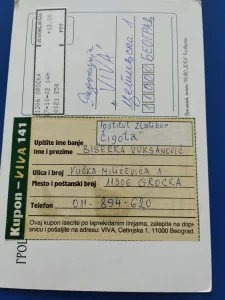 11306 GROCKA
Редакција
"VIVA"
Цетињска 1
11000 БЕОГРАД
Kupon - VIVA 141
Institut Zlatibor
"Čigota"
Upišite ime banje
Ime i prezime BISERKA VUKSANOVIĆ
Ulica i broj VUČKA MILIĆEVIĆA 1
Mesto i poštanski broj 11306 GROCKA
Telefon 011-894-620
Ovaj kupon isecite po isprekidanim linijama, zalepite na dopi-
snicu i pošaljite na adresu: VIVA, Cetinjska 1, 11000 Beograd.